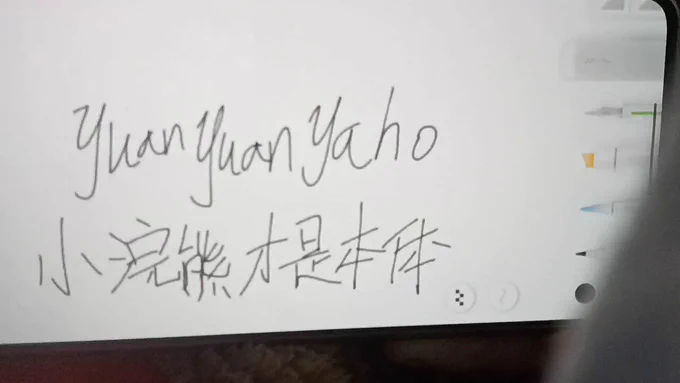 yuanyuanyaho
小浣熊才是本体